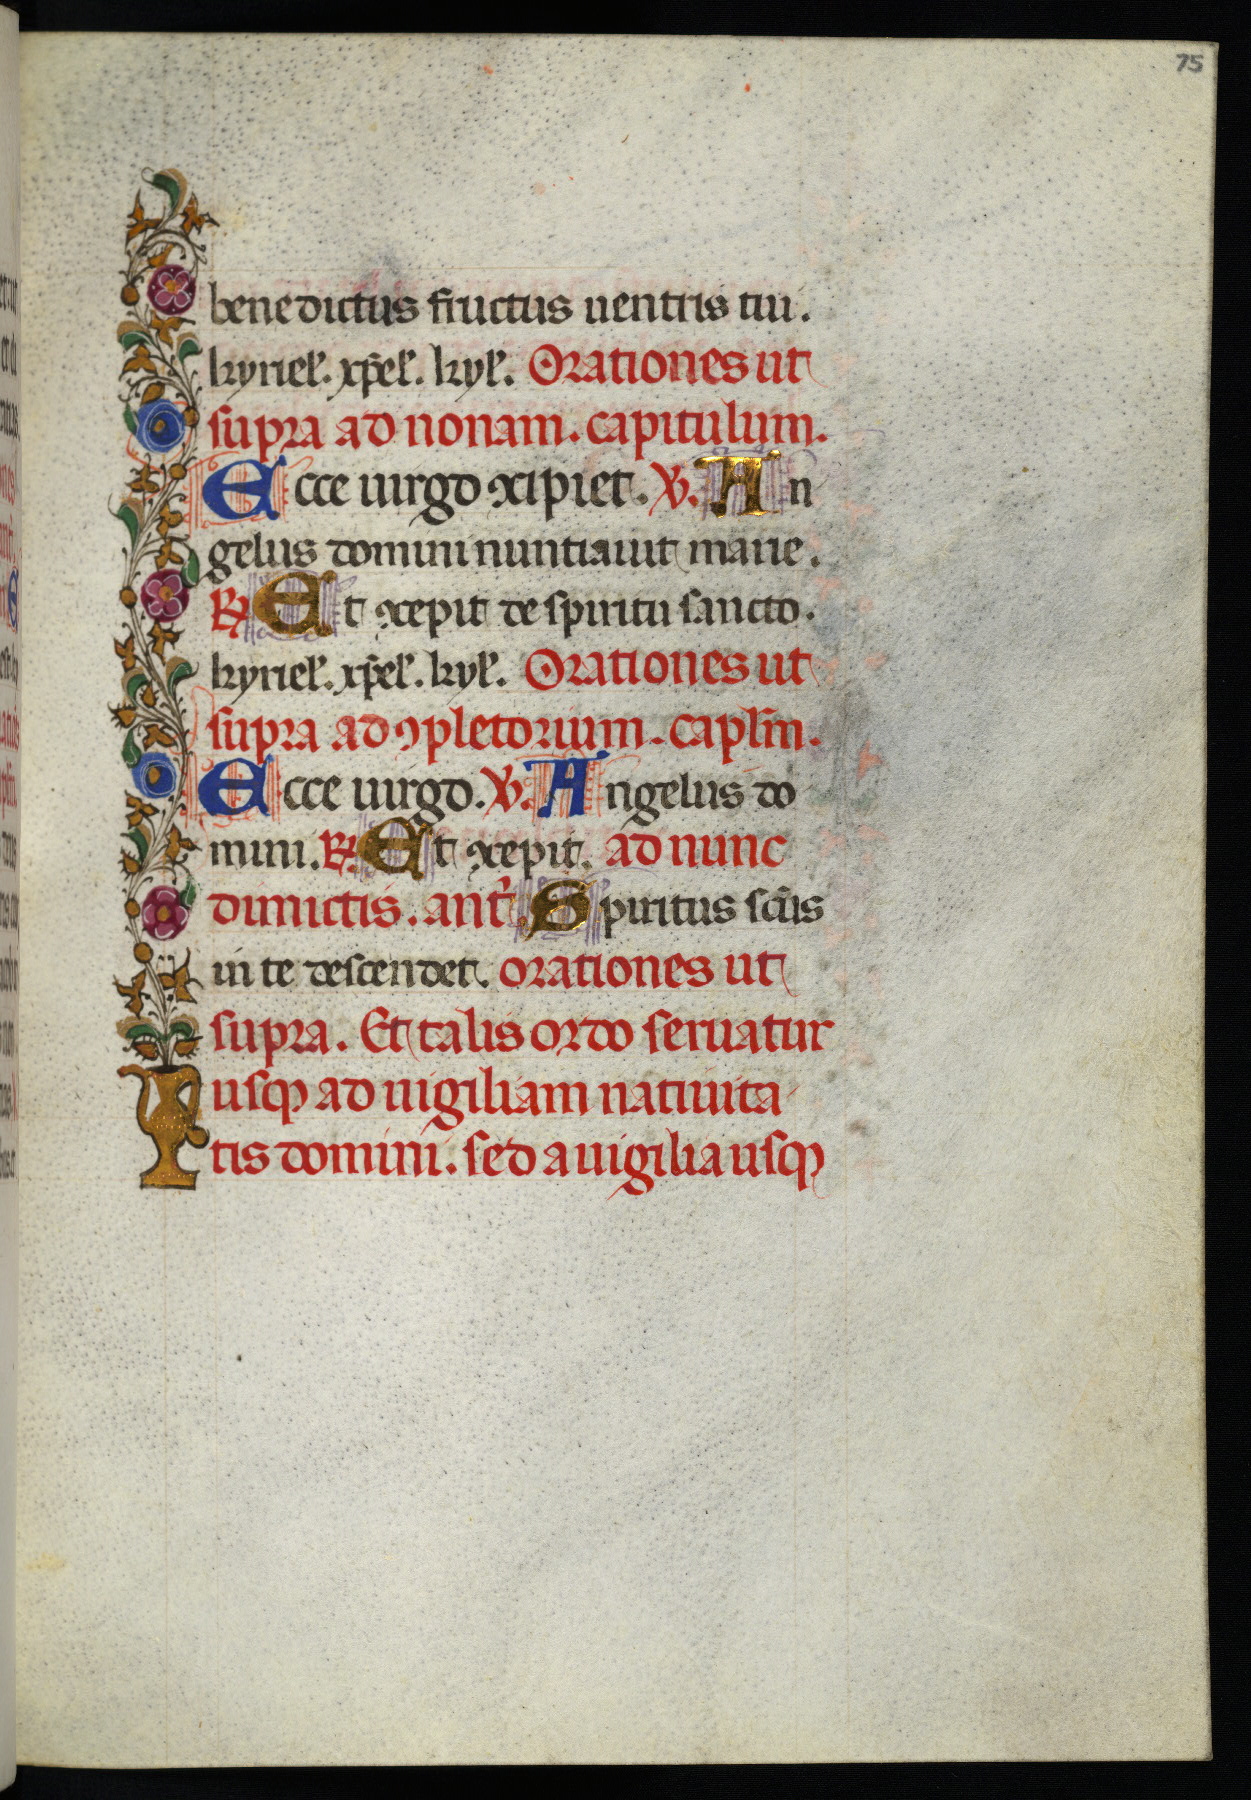 75
benedictus fructus uentris tui.
kyriel̄. xp̄el̄. kyl̄. Orationes ut
supra ad nonam. capitulum.
Ecce uirgo ꝯcipiet. ℣. An
gelus domini nuntiauit marie.
℟ Et ꝯcepit de spiritu sancto.
kyriel̄. xp̄el̄. kyl̄. Orationes ut
supra ad ꝯpletorium. capl̄m.
Ecce uirgo. ℣. Angelus do
mini. ℟. Et ꝯcepit. ad nunc
dimictis. ant̄. Spiritus sc̄us
in te descendet. orationes ut
supra. Et talis ordo seruatur
usqꝫ ad uigiliam natiuita
tis domini. sed a uigilia usqꝫ